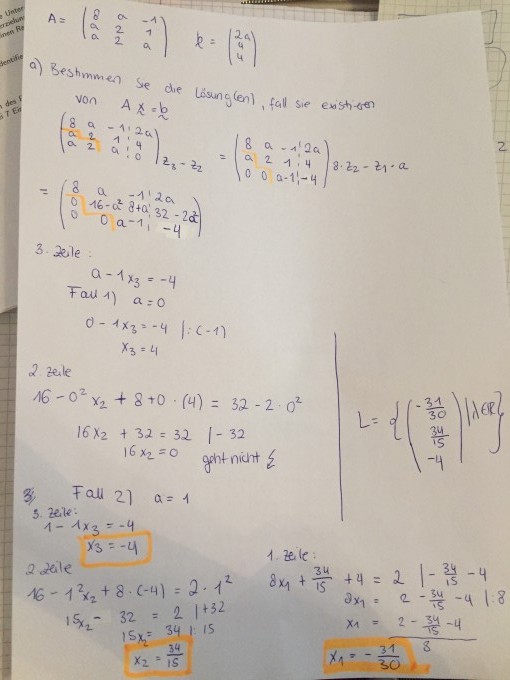 A = ( 8 a -1 ; a 2 1 ; a 2 a )   b = ( 2a ; 4 ; 4 )
a) Bestimmen Sie die Lösung(en), fall sie existieren
von A x = b
( 8 a -1 | 2a ; a 2 1 | 4 ; a 2 a | 0 ) Z3 - Z2 = ( 8 a -1 | 2a ; a 2 1 | 4 ; 0 0 a-1 | -4 ) 8·Z2 - Z1·a
= ( 8 a -1 | 2a ; 0 16-a² 8+a | 32-2a² ; 0 0 a-1 | -4 )
3. Zeile:
a - 1x3 = -4
Fall 1) a = 0
0 - 1x3 = -4 |:(-1)
x3 = 4
2. Zeile
16 - 0² x2 + 8 + 0 · (4) = 32 - 2 · 0²
16x2 + 32 = 32 | -32
16x2 = 0 geht nicht ↯
L = { ( -31/30 ; 34/15 ; -4 ) | λ ∈ ℝ }
Fall 2) a = 1
3. Zeile:
1 - 1x3 = -4
x3 = -4
2 Zeile
16 - 1² x2 + 8 · (-4) = 2 · 1²
15x2 - 32 = 2 | +32
15x2 = 34 | :15
x2 = 34/15
1. Zeile:
8x1 + 34/15 + 4 = 2 | - 34/15 - 4
8x1 = 2 - 34/15 - 4 | :8
x1 = (2 - 34/15 - 4) / 8
x1 = - 31/30